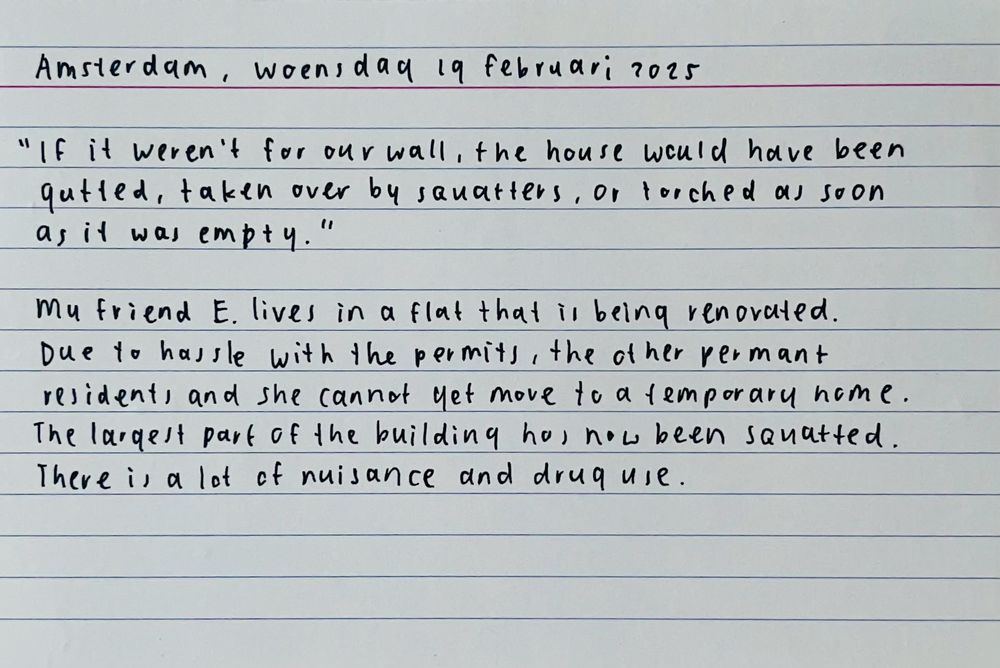 Amsterdam, woensdag 19 februari 2025
"If it weren't for our wall, the house would have been
gutted, taken over by squatters, or torched as soon
as it was empty."
My friend E. lives in a flat that is being renovated.
Due to hassle with the permits, the other permant
residents and she cannot yet move to a temporary home.
The largest part of the building has now been squatted.
There is a lot of nuisance and drug use.